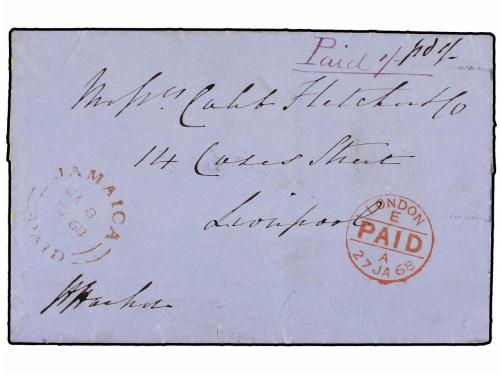 Paid 1/- pd 1/-
Messrs Caleb Fletcher & Co
14 Cases Street
Liverpool
JAMAICA
JA 8
1868
PAID
LONDON
E
PAID
A
27 JA 68